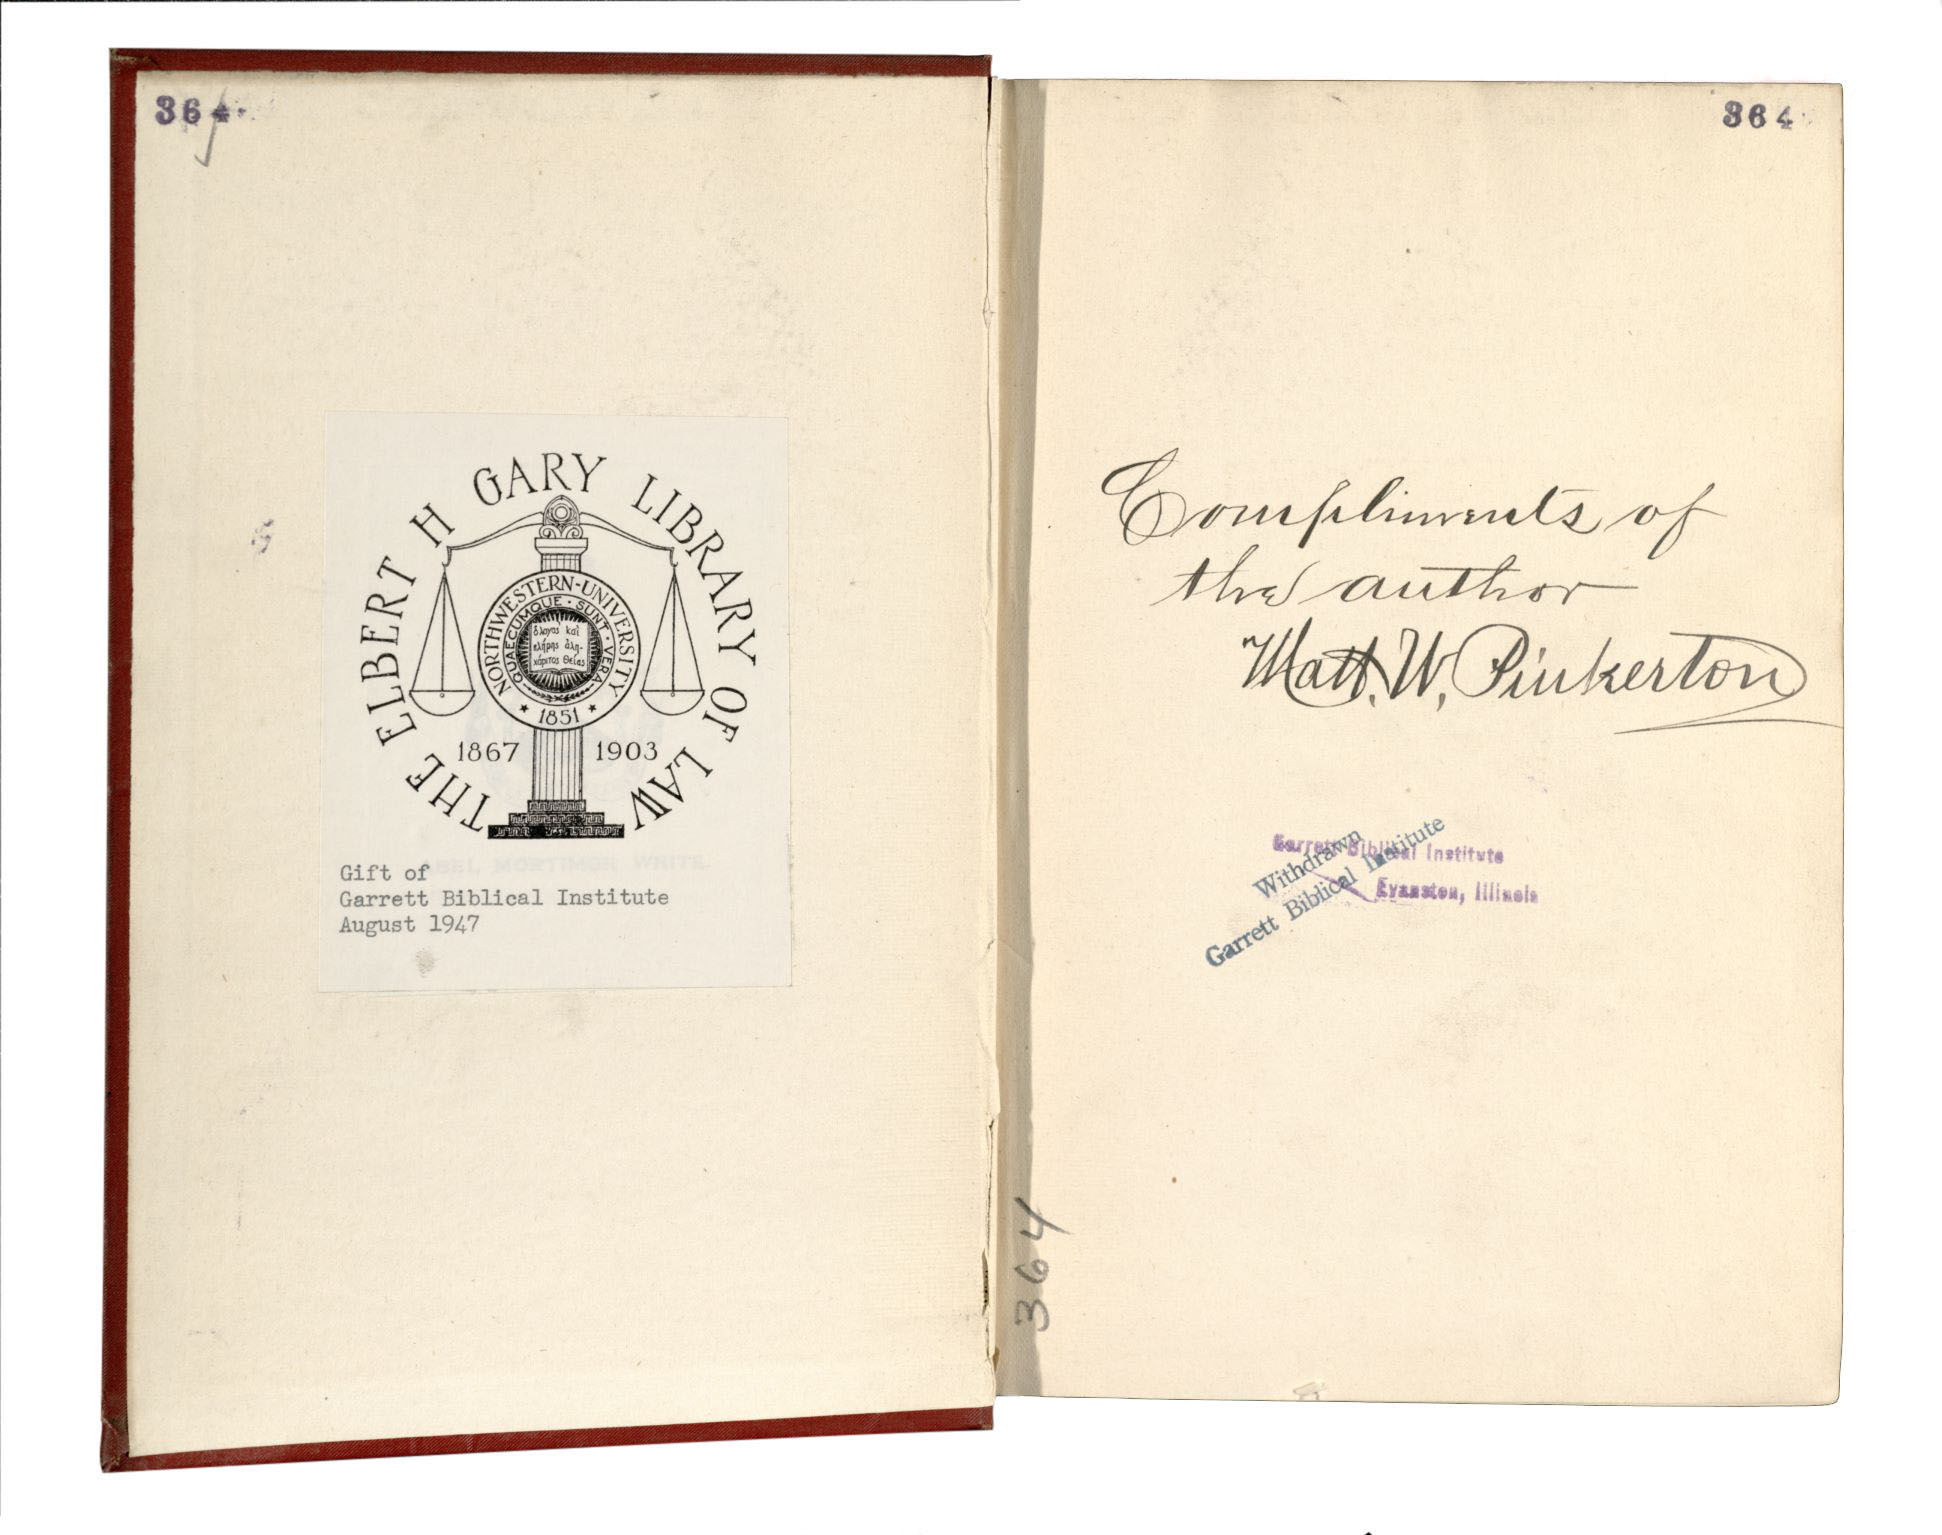 364
THE ELBERT H GARY LIBRARY OF LAW
NORTHWESTERN · UNIVERSITY
QUAECUMQUE · SUNT · VERA
ὁ λόγος καὶ
πλήρης ἀλη-
χάριτος θείας
★ 1851 ★
1867 1903
ABEL MORTIMOR WHITE
Gift of
Garrett Biblical Institute
August 1947
364
Compliments of
the author
Matt. W. Pinkerton
Garrett Biblical Institute
Evanston, Illinois
Withdrawn
Garrett Biblical Institute
364